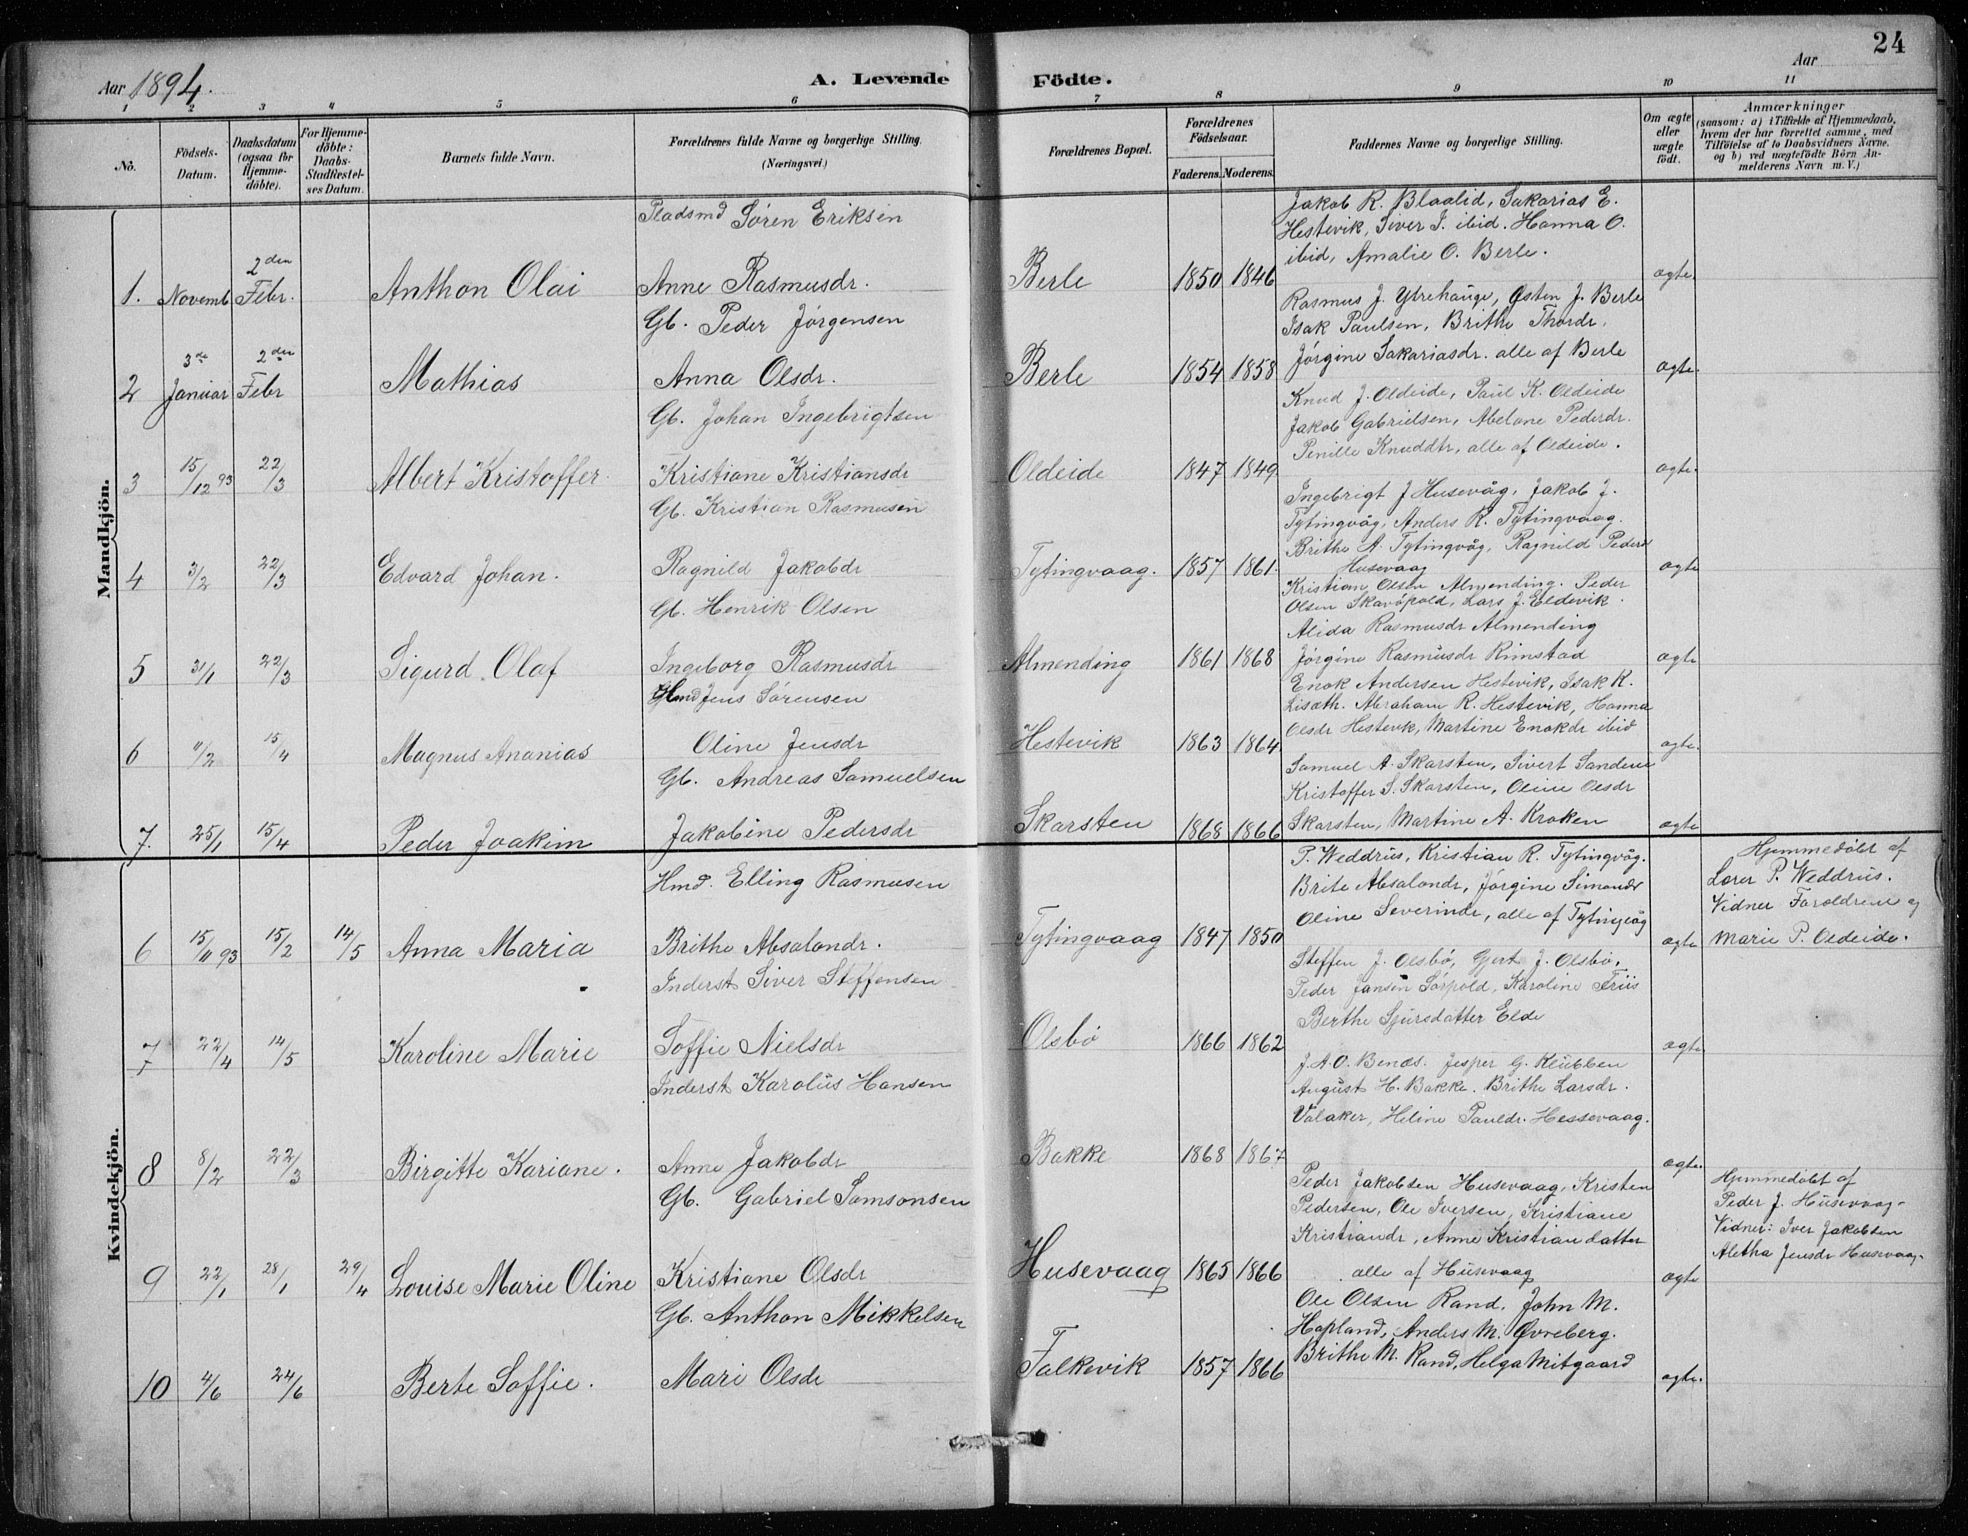 24
Aar 1894.
A. Levende Födte.
Aar
1 2 3 4 5 6 7 8 9 10 11
No.
Födsels-Datum.
Daabsdatum (ogsaa for Hjemme-döbte).
For Hjemme-döbte: Daabs-Stadfæstel-ses Datum.
Barnets fulde Navn.
Forældrenes fulde Navne og borgerlige Stilling. (Næringsvei.)
Forældrenes Bopæl.
Forældrenes Födselsaar.
Faderens. Moderens.
Faddernes Navne og borgerlige Stilling.
Om ægte eller uægte födt.
Anmærkninger
(saasom: a) i Tilfælde af Hjemmedaab, hvem der har forrettet samme, med Tilföielse af to Daabsvidners Navne, og b) ved uægtefödte Börn An-melderens Navn m. V.)
Mandkjön.
Pladsmd Sören Eriksen
Jakob R. Blaalid, Sakarias E.
Hestevik, Siver J. ibid. Hanna O.
ibid, Amalie O. Berle.
1. Novemb 2den Febr. Anthon Olai Anne Rasmusdr. Berle 1850 1846 ægte.
Gb. Peder Jørgensen
Rasmus J. Ytrehauge, Østen J. Berle
Isak Paulsen, Brithe Thordr.
Jørgine Sakariasdr. alle af Berle
2 3de Januar 2den Febr Mathias Anna Olsdr. Berle 1854 1858 ægte.
Gb. Johan Ingebrigtsen
Knud J. Oldeide, Paul K. Oldeide
Jakob Gabrielsen, Abelone Pedersdr.
Penille Knuddtr, alle af Oldeide.
3 15/12 93 22/3 Albert Kristoffer. Kristiane Kristiansdr Oldeide 1847 1849. ægte
Gb. Kristian Rasmusen
Ingebrigt J Husevåg, Jakob J.
Tytingvåg, Anders R. Tytingvaag.
Brithe A. Tytingvåg, Ragnild Pedersd
Husevaag
4 3/2 22/3 Edvard Johan. Ragnild Jakobdr Tytingvaag. 1857 1861. ægte
Gb. Henrik Olsen
Kristian Olsen Almending. Peder
Olsen Skavöpold, Lars J. Eldevik.
Alida Rasmusdr Almending
Jørgine Rasmusdr Rimstad
5 31/1 22/3 Sigurd Olaf Ingeborg Rasmusdr Almending 1861 1868 ægte
Hmd Jens Sørensen
Enok Andersen Hestevik, Isak K.
Lisæth. Abraham R. Hestevik, Hanna
Olsdr Hestevik, Martine Enokdr ibid
6 11/2 15/4 Magnus Ananias Oline Jensdr Hestevik 1863 1864. ægte.
Gb. Andreas Samuelsen
Samuel A. Skarsten, Sivert Sandene
Kristoffer S. Skarsten, Oline Olsdr
Skarsten, Martine A. Kroken
7. 25/1 15/4 Peder Joakim Jakobine Pedersdr Skarsten 1868 1866 ægte
Kvindekjön.
Hmd. Elling Rasmusen
P. Weddrüs, Kristian R. Tytingvåg.
Brite Absalondr, Jørgine Simondr
Oline Severindr, alle af Tytingvåg
Hjemmedøbt af
Lærer P. Weddrüs.
Vidner Forældrene og
Marie P. Oldeide.
6 15/11 93 15/2 14/5 Anna Maria Brithe Absalondr. Tytingvaag 1847 1850 ægte
Inderst Siver Steffensen
Steffen J. Olsbö, Gjert J. Olsbö,
Peder Jansen Sörpold, Karoline Friis
Berthe Sjursdatter Elde
7 22/4 14/5 Karoline Marie Soffie Nielsdr Olsbö 1866 1862 ægte.
Inderst Karolüs Hansen
J. A. O. Benæs. Jesper G. Klübben
August H. Bakke. Brithe Larsdr.
Valaker, Heline Pauldr. Hessevaag.
8 8/2 22/3 Birgitte Kariane. Anne Jakobdr Bakke 1868 1867 ægte.
Gb. Gabriel Samsonsen
Peder Jakobsen Husevaag, Kristen
Pedersen, Ole Iversen, Kristiane
Kristiandr, Anne Kristian datter
alle af Husevaag
Hjemmedøbt af
Peder J. Husevaag.
Vidner: Iver Jakobsen
Aletha Jensdr Husevaag.
9 22/1 28/1 29/4 Louise Marie Oline Kristiane Olsdr Husevaag 1865 1866 ægte
Gb. Anthon Mikkelsen
Ole Olsen Rand, John M.
Hopland, Anders M. Øvreberg.
Brithe M. Rand, Helga Mitgaard
10 4/6 24/6 Berte Soffie. Mari Olsdr Falkevik 1857 1866 ægte.